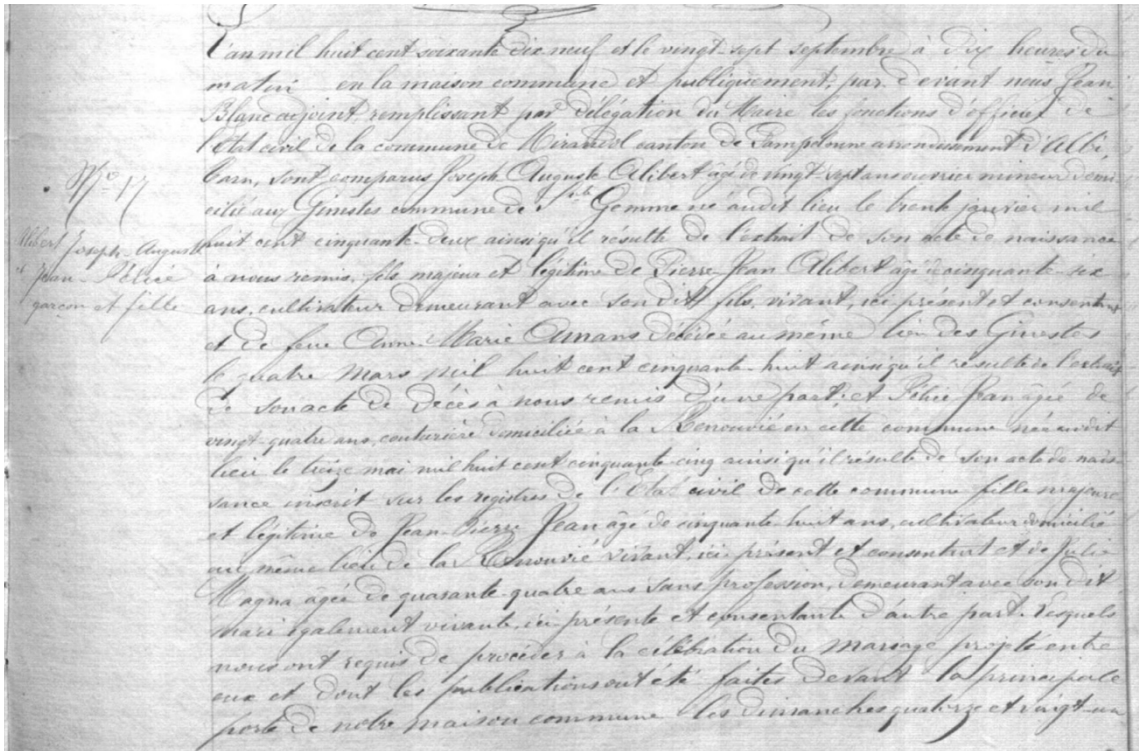 L'an mil huit cent soixante dix neuf et le vingt-sept septembre à dix heures du
matin en la maison commune et publiquement, par devant nous Jean
Blanc adjoint remplissant par délégation du Maire les fonctions d'officier de
l'Etat civil de la commune de Mirandol canton de Pampelonne arrondissement d'Albi
Tarn, sont comparus Joseph Auguste Alibert âgé de vingt-sept ans ouvrier mineur domi-
cilié aux Ginestes commune de Ste Gemme né audit lieu le trente janvier mil
huit cent cinquante-deux ainsi qu'il résulte de l'extrait de son acte de naissance
à nous remis, fils majeur et légitime de Pierre-Jean Alibert âgé de cinquante-six
ans, cultivateur demeurant avec son dit fils, vivant, ici présent et consentant
et de feue Anne Marie Amans décédée au même lieu des Ginestes
le quatre Mars mil huit cent cinquante-huit ainsi qu'il résulte de l'extrait
de son acte de décès à nous remis d'une part; et Félice Jean âgée de
vingt-quatre ans, couturière domiciliée à la Renouvié en cette commune née audit
lieu le treize mai mil huit cent cinquante-cinq ainsi qu'il résulte de son acte de nais-
sance inscrit sur les registres de l'Etat civil de cette commune fille majeure
et légitime de Jean-Pierre Jean âgé de cinquante-huit ans, cultivateur domicilié
au même lieu de la Renouvié vivant, ici présent et consentant et de Julie
Magna âgée de quarante-quatre ans sans profession, demeurant avec son dit
mari également vivante, ici présente et consentante d'autre part. Lesquels
nous ont requis de procéder à la célébration du mariage projeté entre
eux et dont les publications ont été faites devant la principale
porte de notre maison commune les dimanches quatorze et vingt-un
No 17
Alibert Joseph-Auguste
et Jean Félice
garçon et fille